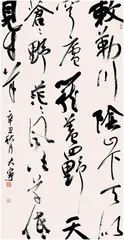 敕勒川陰山下天似
穹廬籠蓋四野天
蒼〻野茫〻風吹草低
見牛羊
辛丑